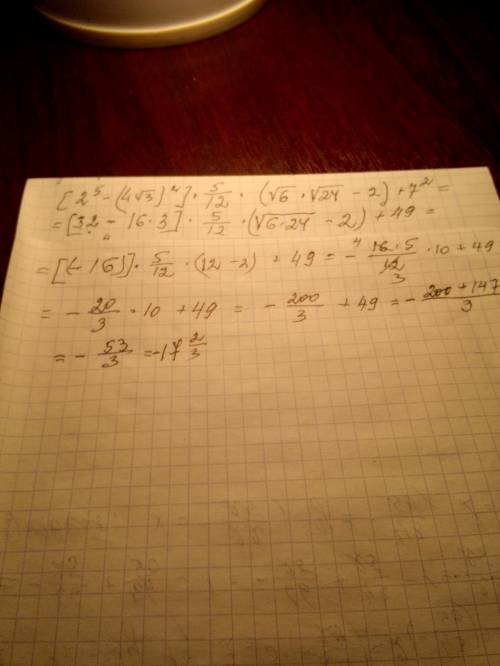 [2⁵-(4√3)²]·5/12·(√6·√24-2)+7²=
=[32-16·3]·5/12·(√6·24-2)+49=
=[(-16)]·5/12·(12-2)+49=-⁴16·5/12 3·10+49
=-20/3·10+49=-200/3+49=-200+147/3
=-53/3=-17 2/3